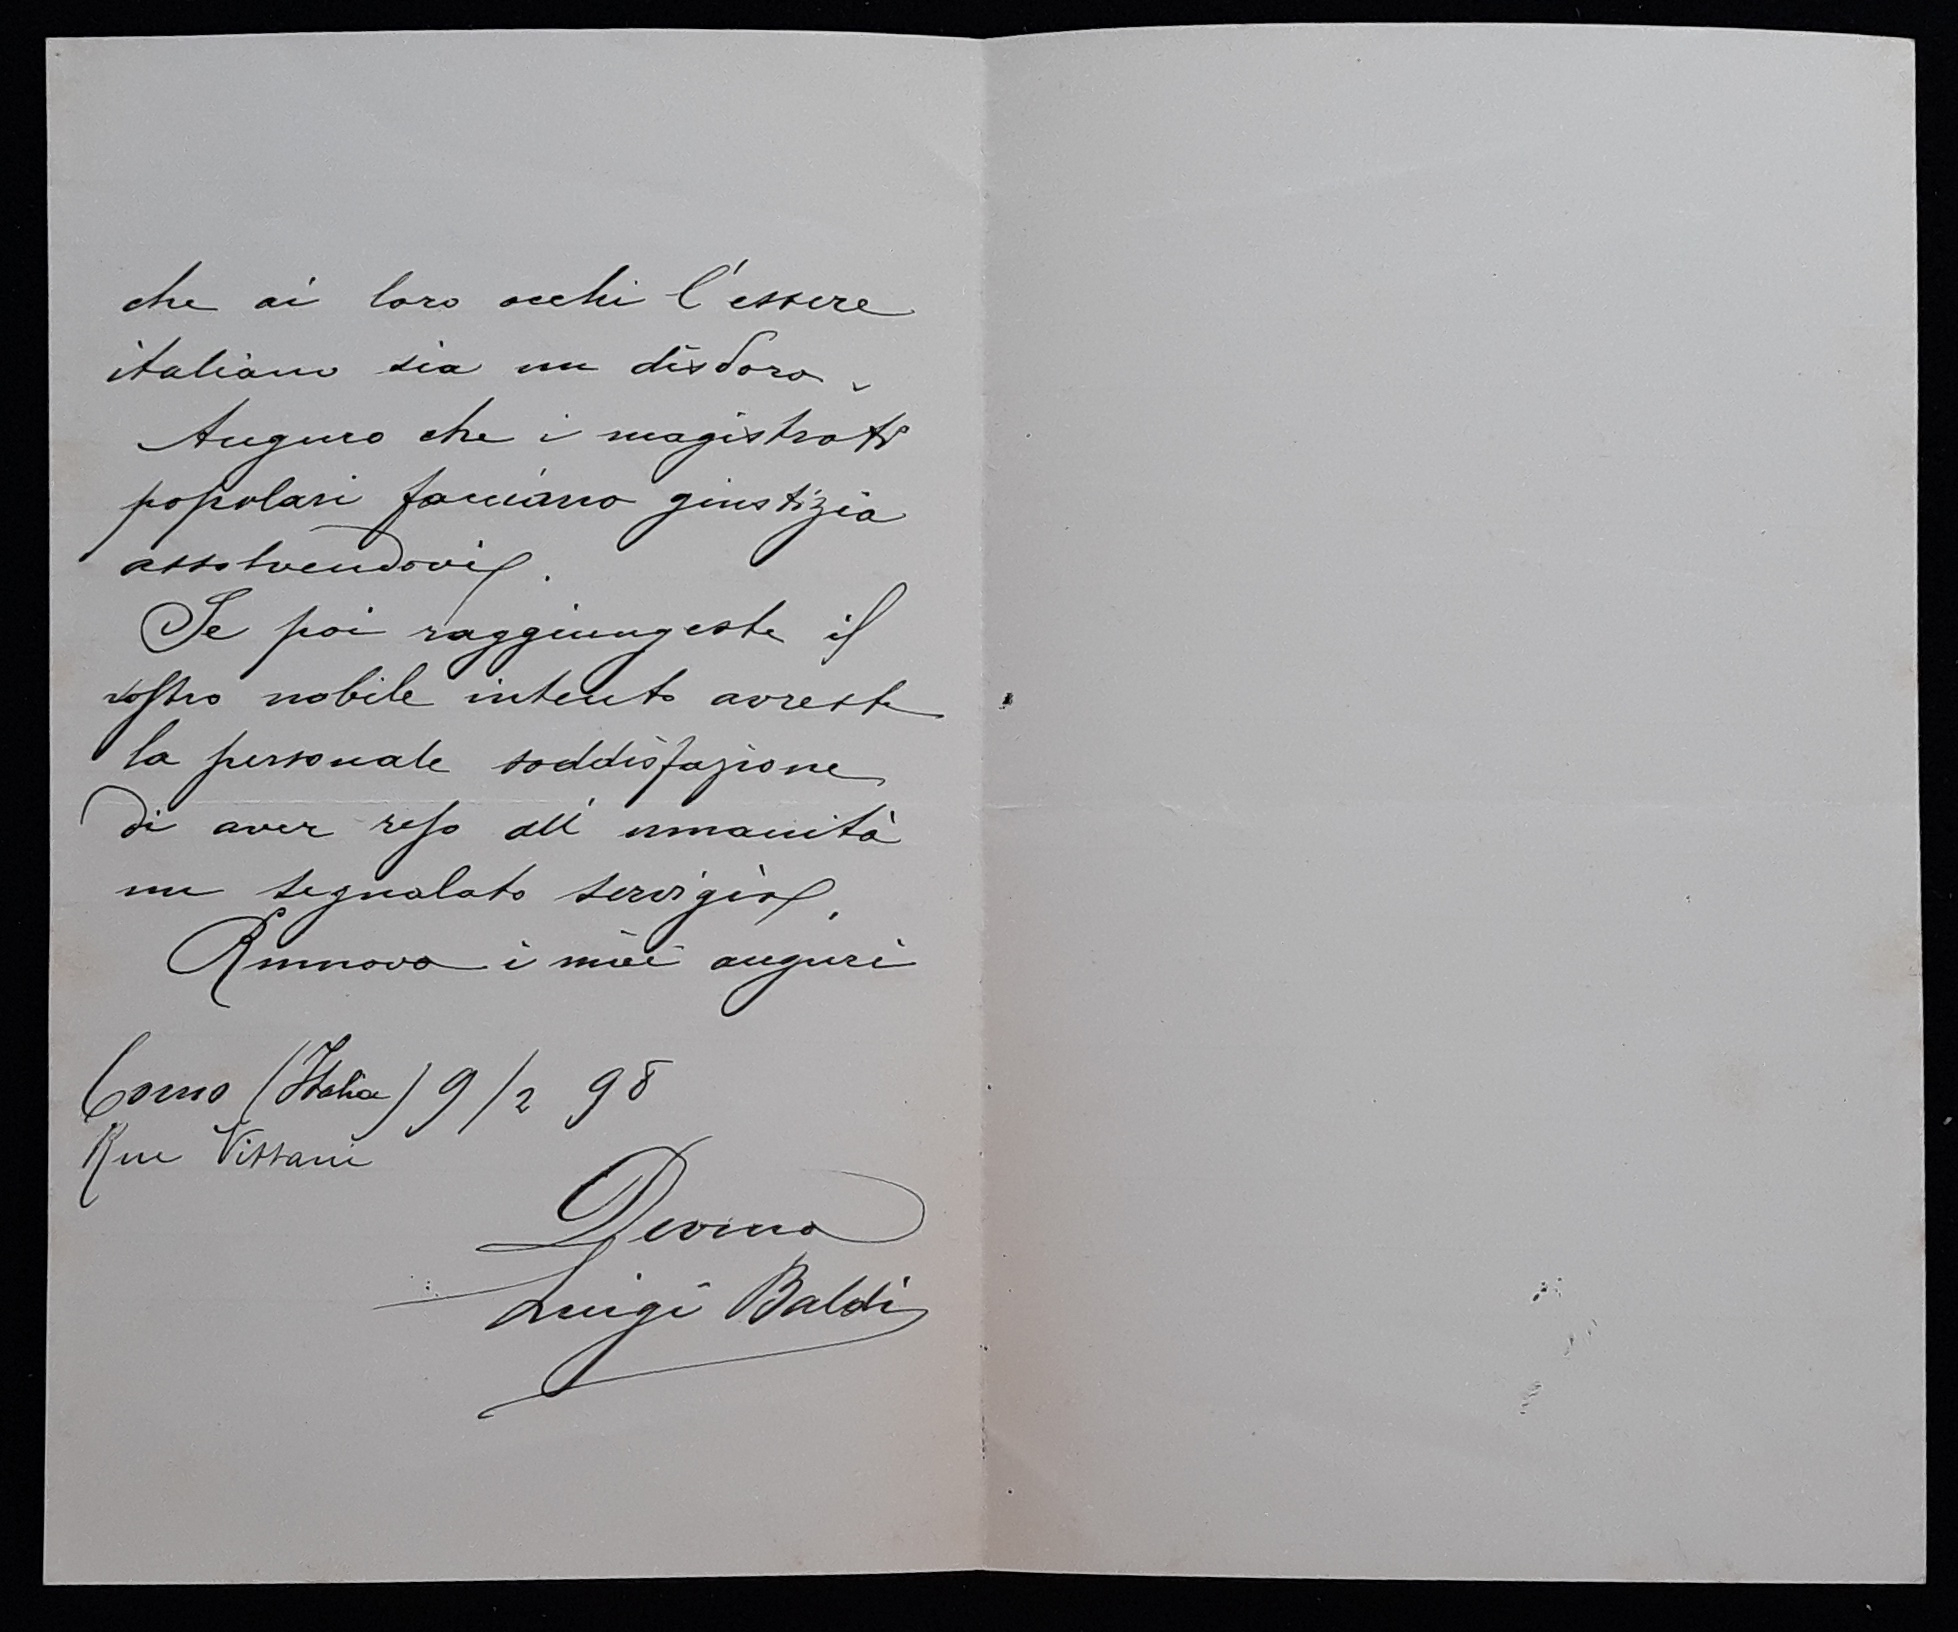 che ai loro occhi l'essere
italiano sia un disdoro.
Auguro che i magistrati
popolari facciano giustizia
assolvendovi.
Se poi raggiungeste il
vostro nobile intento avreste
la personale soddisfazione
di aver reso all'umanità
un segnalato servigio.
Rinnovo i miei auguri
Como (Italia) 9/2 98
Rue Vittani
Devmo
Luigi Baldi